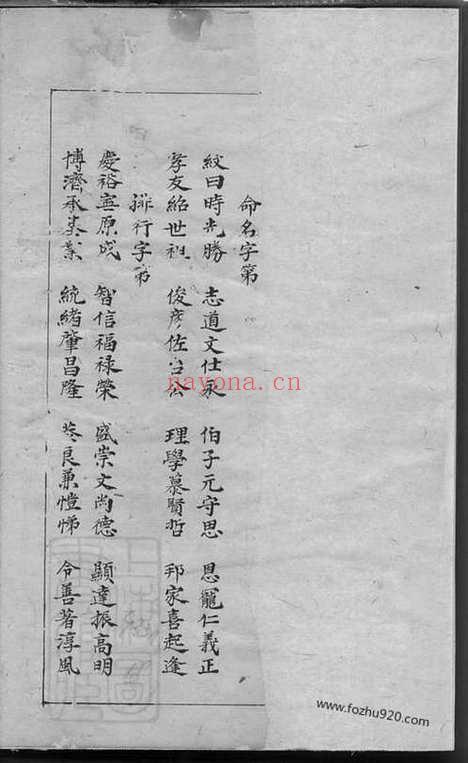 命名字第
紋曰時光勝 志道文仕永 伯子元守思 恩寵仁義正
孝友紹世祖 俊彥佐 公 理學慕賢哲 邦家喜起逢
排行字第
慶裕寔原成 智信福祿榮 盛崇文尚德 顯達振高明
博濟承基業 統緒肇昌隆 良兼愷悌 令善著淳風
nayona.cn
www.fozhu920.com